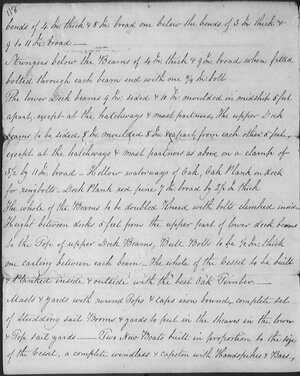 158
bends of 4 In: thick & 8 In: broad one below the bends of 3 In: thick &
9 to 11 In: broad
Stringers below the Beams of 4 In: thick & 9 In: broad when fitted
bolted through each beam end with one 3/4 In: bolt
The lower Deck beams 9 In: sided & 11 In: moulded in midship 5 feet
apart, except at the hatchways & mast partners, the upper Deck
beams to be sided 8 In: moulded 8 In: & apart from each other 5 feet,
except at the hatchways & mast partners as above on a clamp of
3 1/2 by 11 In: broad — Hollow waterways of Oak, Oak Plank on deck
for ringbolts — Deck Plank red pine 7 In: broad by 2 3/4 In thick
The whole of the Beams to be doubled Kneed with bolts clenched inside
Height between decks 5 feet from the upper part of lower deck beams
to the Top of upper Deck Beams, Butt Bolts to be In: thick
one carling between each beam — The whole of the Vessel to be built
& Planked inside & outside with the best Oak Timber —
Masts & yards with round Tops & caps iron bound, complete set
of studding sail Booms & yards to put in the sheaves in the lower
& Top sail yards — Two New Boats built in proportion to the size
of the Vessel, a complete windlass & capston with Handspikes & Bars,